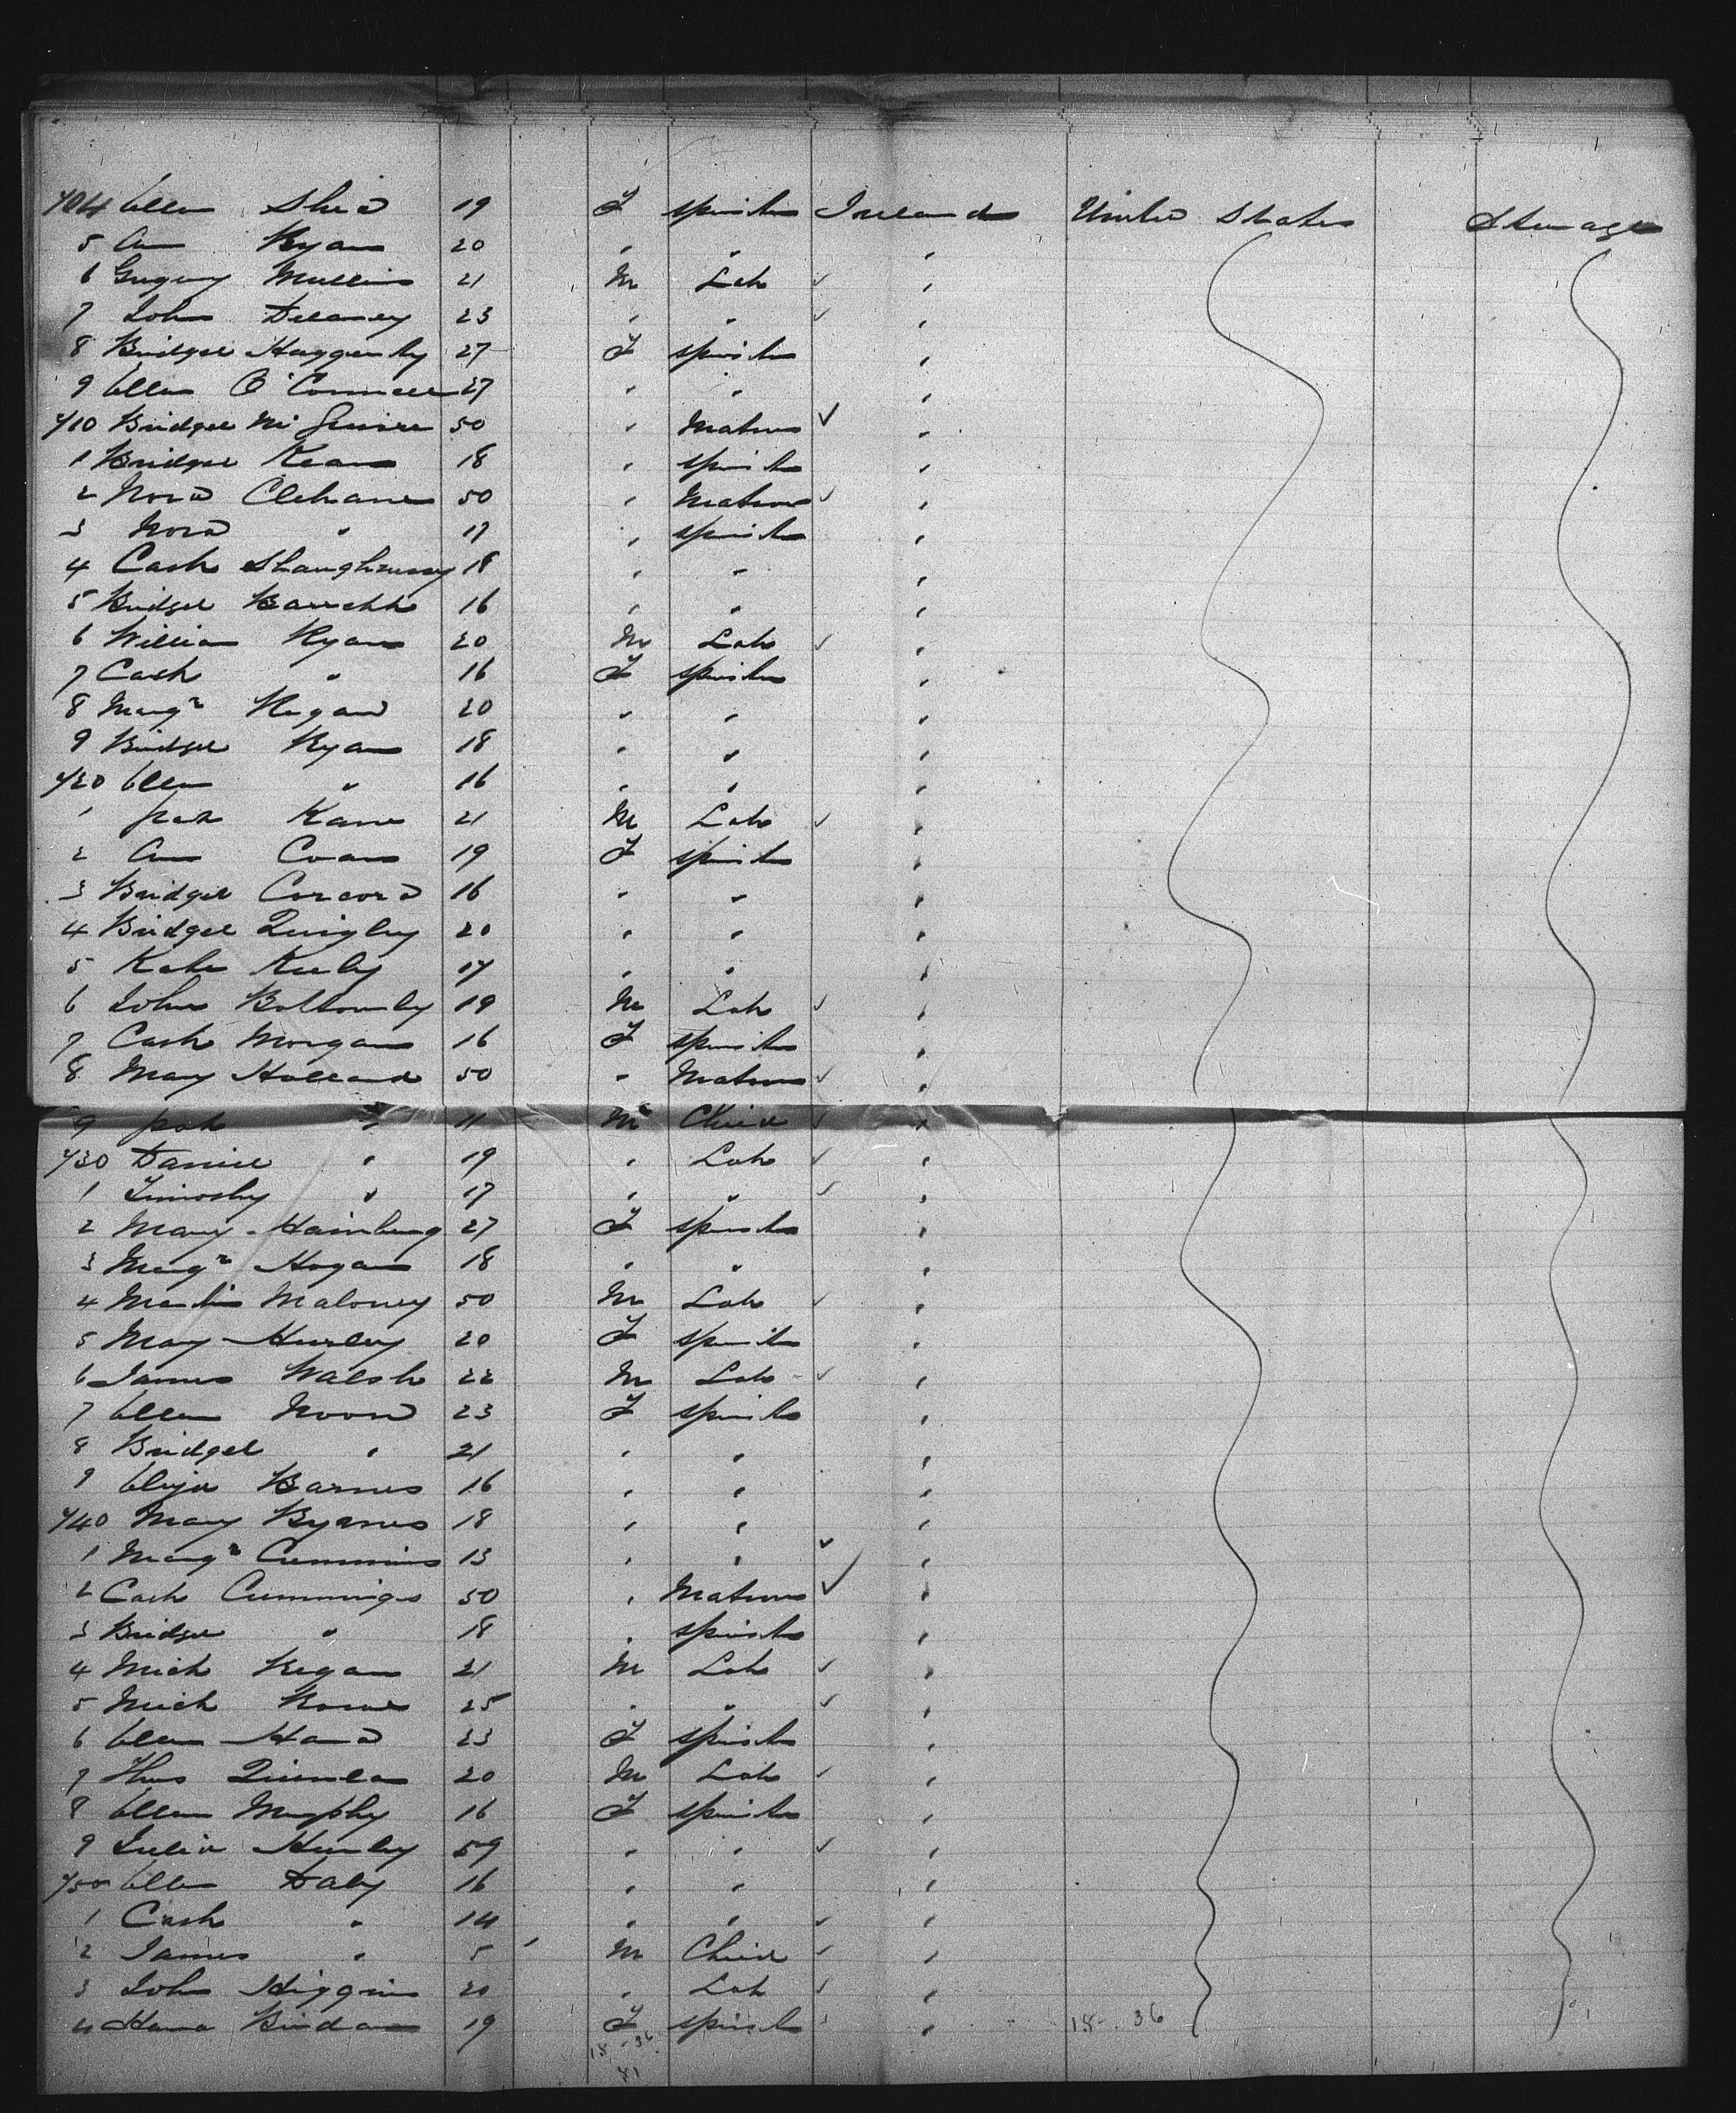 704 Ellen Shea 19 F Spinster Ireland United States Steerage
5 Ann Ryan 20 " " "
6 Gregory Mullins 21 M Lab ✓ "
7 John Delaney 23 " " ✓ "
8 Bridget Haggerty 27 F Spinster "
9 Ellen O'Connell 27 " " "
710 Bridget McGuire 50 " Matron ✓ "
1 Bridget Kean 18 " Spinster "
2 Nora Clehane 50 " Matron ✓ "
3 Nora " 17 " Spinster "
4 Cath Shaughnessy 18 " " "
5 Bridget 16 " " "
6 William Ryan 20 M Lab ✓ "
7 Cath " 16 F Spinster "
8 Margt Regan 20 " " "
9 Bridget Ryan 18 " " "
720 Ellen " 16 " " "
1 Pat Kane 21 M Lab ✓ "
2 Ann 19 F Spinster "
3 Bridget Corcora 16 " " "
4 Bridget Quigley 20 " " "
5 Kate 17 " " "
6 John Bottomley 19 M Lab ✓ "
7 Cath Morgan 16 F Spinster "
8 Mary Holland 50 " Matron ✓ "
9 Pat " 11 M Child ✓ "
730 Daniel " 19 " Lab ✓ "
1 Timothy " 17 " " ✓ "
2 Mary 27 F Spinster "
3 Margt Hogan 18 " " "
4 Martin Maloney 50 M Lab ✓ "
5 Mary Hurley 20 F Spinster "
6 James Walsh 22 M Lab ✓ "
7 Ellen Noon 23 F Spinster "
8 Bridget " 21 " " "
9 Eliza Barnes 16 " " "
740 Mary Byrnes 18 " " "
1 Margt Cummins 13 " " ✓ "
2 Cath Cummings 50 " Matron ✓ "
3 Bridget " 18 " Spinster "
4 Mich Regan 21 M Lab ✓ "
5 Mich 25 " " ✓ "
6 Ellen 23 F Spinster "
7 Thos Quinlan 20 M Lab ✓ "
8 Ellen Murphy 16 F Spinster "
9 Julia Hurley 59 " " ✓ "
750 Ellen Daly 16 " " "
1 Cath " 14 " " ✓ "
2 James " 5 M Child ✓ "
3 John Higgins 20 " Lab ✓ "
4 Hana 19 F Spinster "
18 - 36 18 - 36